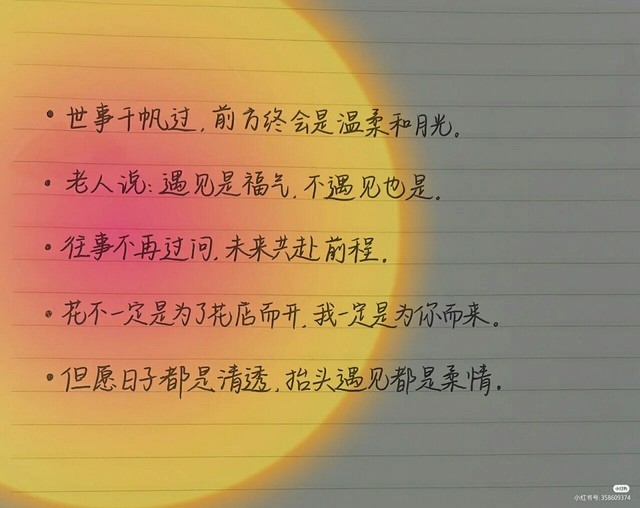 • 世事千帆过，前方终会是温柔和月光。
• 老人说：遇见是福气，不遇见也是。
• 往事不再过问，未来共赴前程。
• 花不一定是为了花店而开，我一定是为你而来。
• 但愿日子都是清透，抬头遇见都是柔情。
小红书
小红书号：358609374